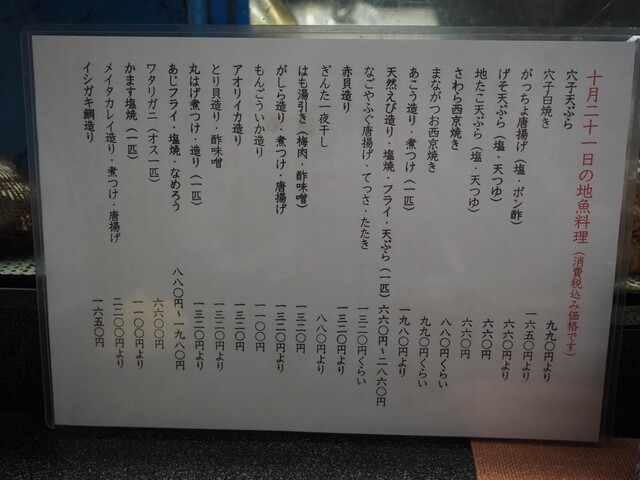 十月二十一日の地魚料理(消費税込み価格です)
穴子天ぷら 九九〇円より
穴子白焼き 一六五〇円より
がっちょ唐揚げ(塩・ポン酢) 六六〇円より
げそ天ぷら(塩・天つゆ) 六六〇円
地たこ天ぷら(塩・天つゆ) 六六〇円
さわら西京焼き 八八〇円くらい
まながつお西京焼き 九九〇円くらい
あこう造り・煮つけ(一匹) 一九八〇円より
天然えび造り・塩焼・フライ・天ぷら(一匹) 六六〇円〜二八六〇円
なごやふぐ唐揚げ・てっさ・たたき 一三二〇円くらい
赤貝造り 一三二〇円より
ぎんた一夜干し 八八〇円より
はも湯引き(梅肉・酢味噌) 一三二〇円
がしら造り・煮つけ・唐揚げ 一三二〇円より
もんごういか造り 一一〇〇円
アオリイカ造り 一三二〇円
とり貝造り・酢味噌 一三二〇円より
丸はげ煮つけ・造り(一匹) 一三二〇円より
あじフライ・塩焼・なめろう 八八〇円〜一九八〇円
ワタリガニ(オス一匹) 六六〇〇円
かます塩焼(一匹) 一一〇〇円より
メイタカレイ造り・煮つけ・唐揚げ 二二〇〇円より
イシガキ鯛造り 一六五〇円